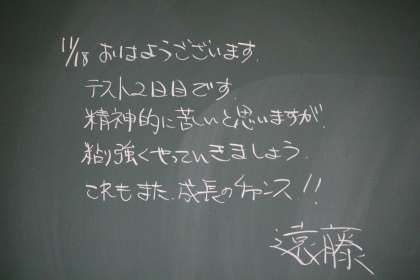 11/18 おはようございます.
テスト2日目です.
精神的に苦しいと思いますが.
粘り強くやっていきましょう.
これもまた、成長のチャンス!!
遠藤